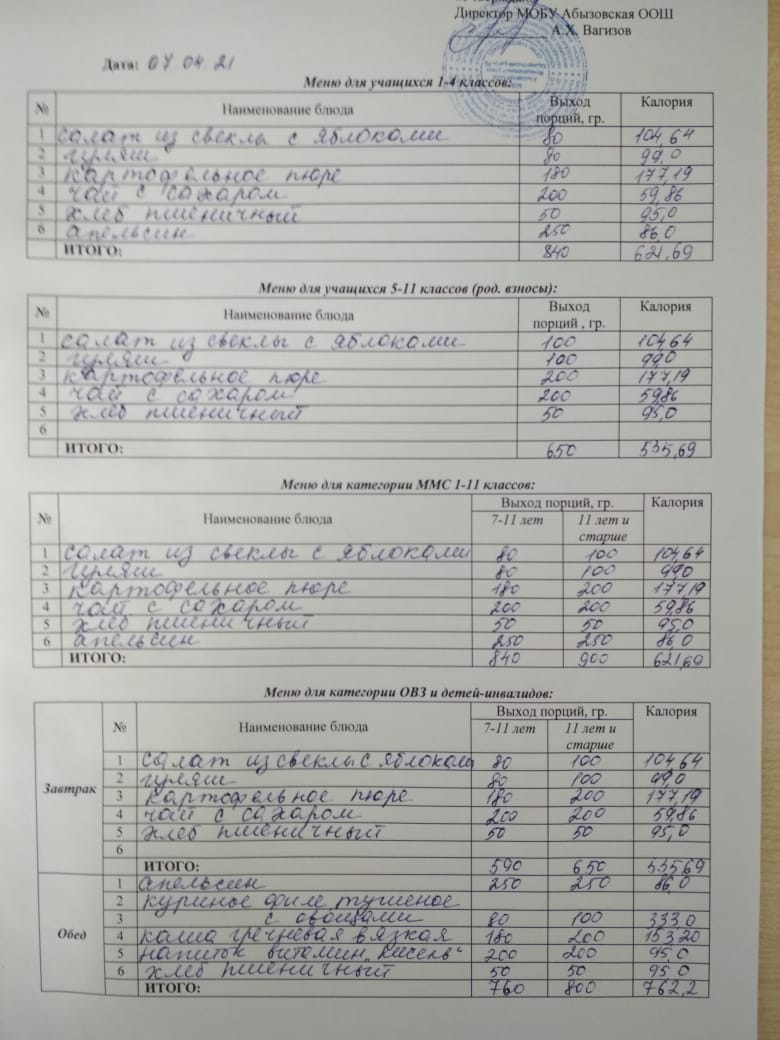 Директор МОБУ Абызовская ООШ
А.Х. Вагизов
Дата: 07.04.21
Меню для учащихся 1-4 классов:
№ Наименование блюда Выход порций, гр. Калория
1 салат из свеклы с яблоками 80 104,64
2 гуляш 80 99,0
3 картофельное пюре 180 177,19
4 чай с сахаром 200 59,86
5 хлеб пшеничный 50 95,0
6 апельсин 250 86,0
ИТОГО: 840 621,69
Меню для учащихся 5-11 классов (род. взносы):
№ Наименование блюда Выход порций , гр. Калория
1 салат из свеклы с яблоками 100 104,64
2 гуляш 100 99,0
3 картофельное пюре 200 177,19
4 чай с сахаром 200 59,86
5 хлеб пшеничный 50 95,0
6
ИТОГО: 650 535,69
Меню для категории ММС 1-11 классов:
№ Наименование блюда Выход порций, гр. Калория
7-11 лет 11 лет и старше
1 салат из свеклы с яблоками 80 100 104,64
2 гуляш 80 100 99,0
3 картофельное пюре 180 200 177,19
4 чай с сахаром 200 200 59,86
5 хлеб пшеничный 50 50 95,0
6 апельсин 250 250 86,0
ИТОГО: 840 900 621,69
Меню для категории ОВЗ и детей-инвалидов:
№ Наименование блюда Выход порций, гр. Калория
7-11 лет 11 лет и старше
Завтрак
1 салат из свеклы с яблоками 80 100 104,64
2 гуляш 80 100 99,0
3 картофельное пюре 180 200 177,19
4 чай с сахаром 200 200 59,86
5 хлеб пшеничный 50 50 95,0
6
ИТОГО: 590 650 535,69
Обед
1 апельсин 250 250 86,0
2 куриное филе тушеное
3 с овощами 80 100 333,0
4 каша гречневая вязкая 180 200 153,20
5 напиток витамин „Кисель“ 200 200 95,0
6 хлеб пшеничный 50 50 95,0
ИТОГО: 760 800 762,2